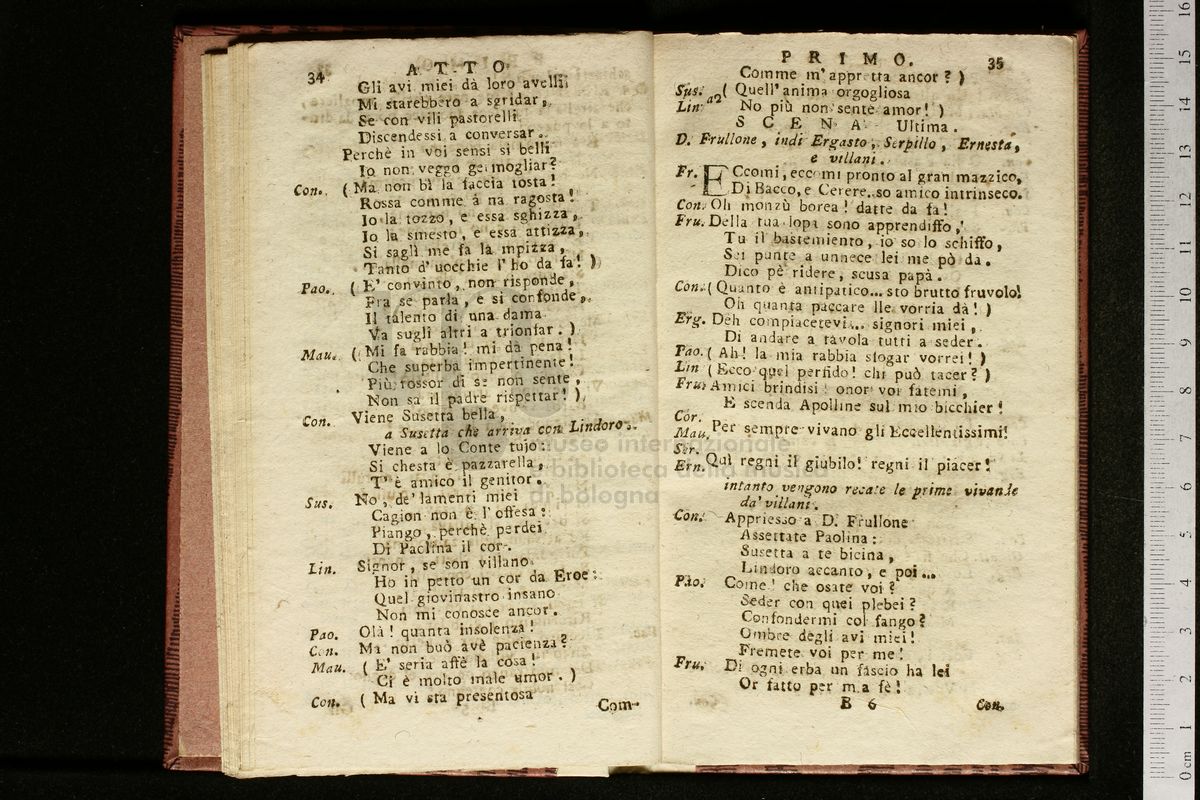 34 ATTO
Gli avi miei dà loro avelli,
Mi starebbero a sgridar,
Se con vili pastorelli
Discendessi a conversar.
Perchè in voi sensi si belli
Io non veggo germogliar?
Con. ( Ma non bì la faccia tosta!
Rossa comme à na ragosta!
Io la tozzo, e essa sghizza,
Io la smesto, e essa attizza,
Si sagli me fa la mpizza,
Tanto d' uocchie l' ho da fa! )
Pao. ( E' convinto, non risponde,
Fra se parla, e si confonde,
Il talento di una dama
Va sugli altri a trionfar. )
Mau. ( Mi fa rabbia! mi dà pena!
Che superba impertinente!
Più rossor di se non sente,
Non sa il padre rispettar! )
Con. Viene Susetta bella,
a Susetta che arriva con Lindoro.
Viene a lo Conte tujo:
Si chesta è pazzarella,
T' è amico il genitor.
Sus. No, de' lamenti miei
Cagion non è l' offesa:
Piango, perchè perdei
Di Paolina il cor.
Lin. Signor, se son villano
Ho in petto un cor da Eroe:
Quel giovinastro insano
Non mi conosce ancor.
Pao. Olà! quanta insolenza!
Con. Ma non buò avè pacienza?
Mau. ( E' seria affè la cosa!
Ci è molto male umor. )
Con. ( Ma vi sta presentosa
Com-
PRIMO. 35
Comme m' appretta ancor? )
Sus. Lin. a2 ( Quell' anima orgogliosa
No più non sente amor! )
SCENA Ultima.
D. Frullone, indi Ergasto, Serpillo, Ernesta,
e villani.
Fr. ECcomi, eccomi pronto al gran mazzico,
Di Bacco, e Cerere so amico intrinseco.
Con. Oh monzù borea! datte da fa!
Fru. Della tua lopa sono apprendisso,
Tu il bastemiento, io so lo schiffo,
Sei punte a unnece lei me pò da.
Dico pè ridere, scusa papà.
Con. ( Quanto è antipatico... sto brutto fruvolo!
Oh quanta paccare lle vorria dà! )
Erg. Deh compiacetevi... signori miei,
Di andare a tavola tutti a seder.
Pao. ( Ah! la mia rabbia sfogar vorrei! )
Lin ( Ecco quel perfido! chi può tacer? )
Fru. Amici brindisi! onor voi fatemi,
E scenda Apolline sul mio bicchier!
Cor.
Mau. Per sempre vivano gli Eccellentissimi!
Ser.
Ern. Quì regni il giubilo! regni il piacer!
intanto vengono recate le prime vivande
da' villani.
Con. Appriesso a D. Frullone
Assettate Paolina:
Susetta a te bicina,
Lindoro accanto, e poi...
Pao. Come! che osate voi?
Seder con quei plebei?
Confondermi col fango?
Ombre degli avi miei!
Fremete voi per me!
Fru. Di ogni erba un fascio ha lei
Or fatto per mia fè!
B 6 Con.
museo internazionale
e biblioteca della musica
di bologna